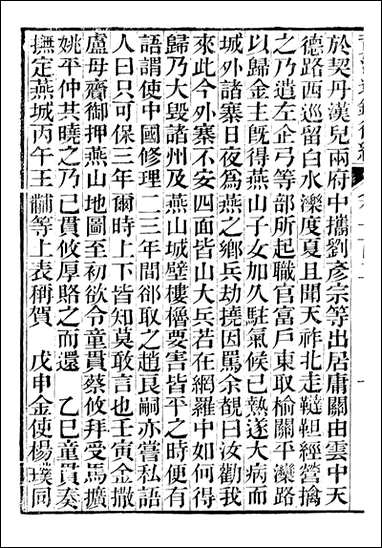 於契丹漢兒兩府中攜劉彥宗等出居庸關由雲中天
德路西巡留白水濼度夏且聞天祚北走韃靼經營擒
之乃遣左企弓等部所起職官富戶東取榆關平灤路
以歸金主旣得燕山子女加久駐氣候已熱遂大病而
城外諸寨日夜爲燕之鄉兵劫撓因罵余覩曰汝勸我
來此今外寨不安四面皆山大兵若在網羅中如何得
歸乃大毀諸州及燕山城壁樓櫓要害皆平之時便有
語謂使中國修理二三年間卻取之趙良嗣亦嘗私語
人曰只可保三年爾時上下皆知莫敢言也壬寅金撒
盧母齎御押燕山地圖至初欲令童貫蔡攸拜受馬擴
姚平仲共曉之乃已貫攸厚賂之而還　乙巳童貫奏
撫定燕城丙午王黼等上表稱賀　戊申金使楊璞同